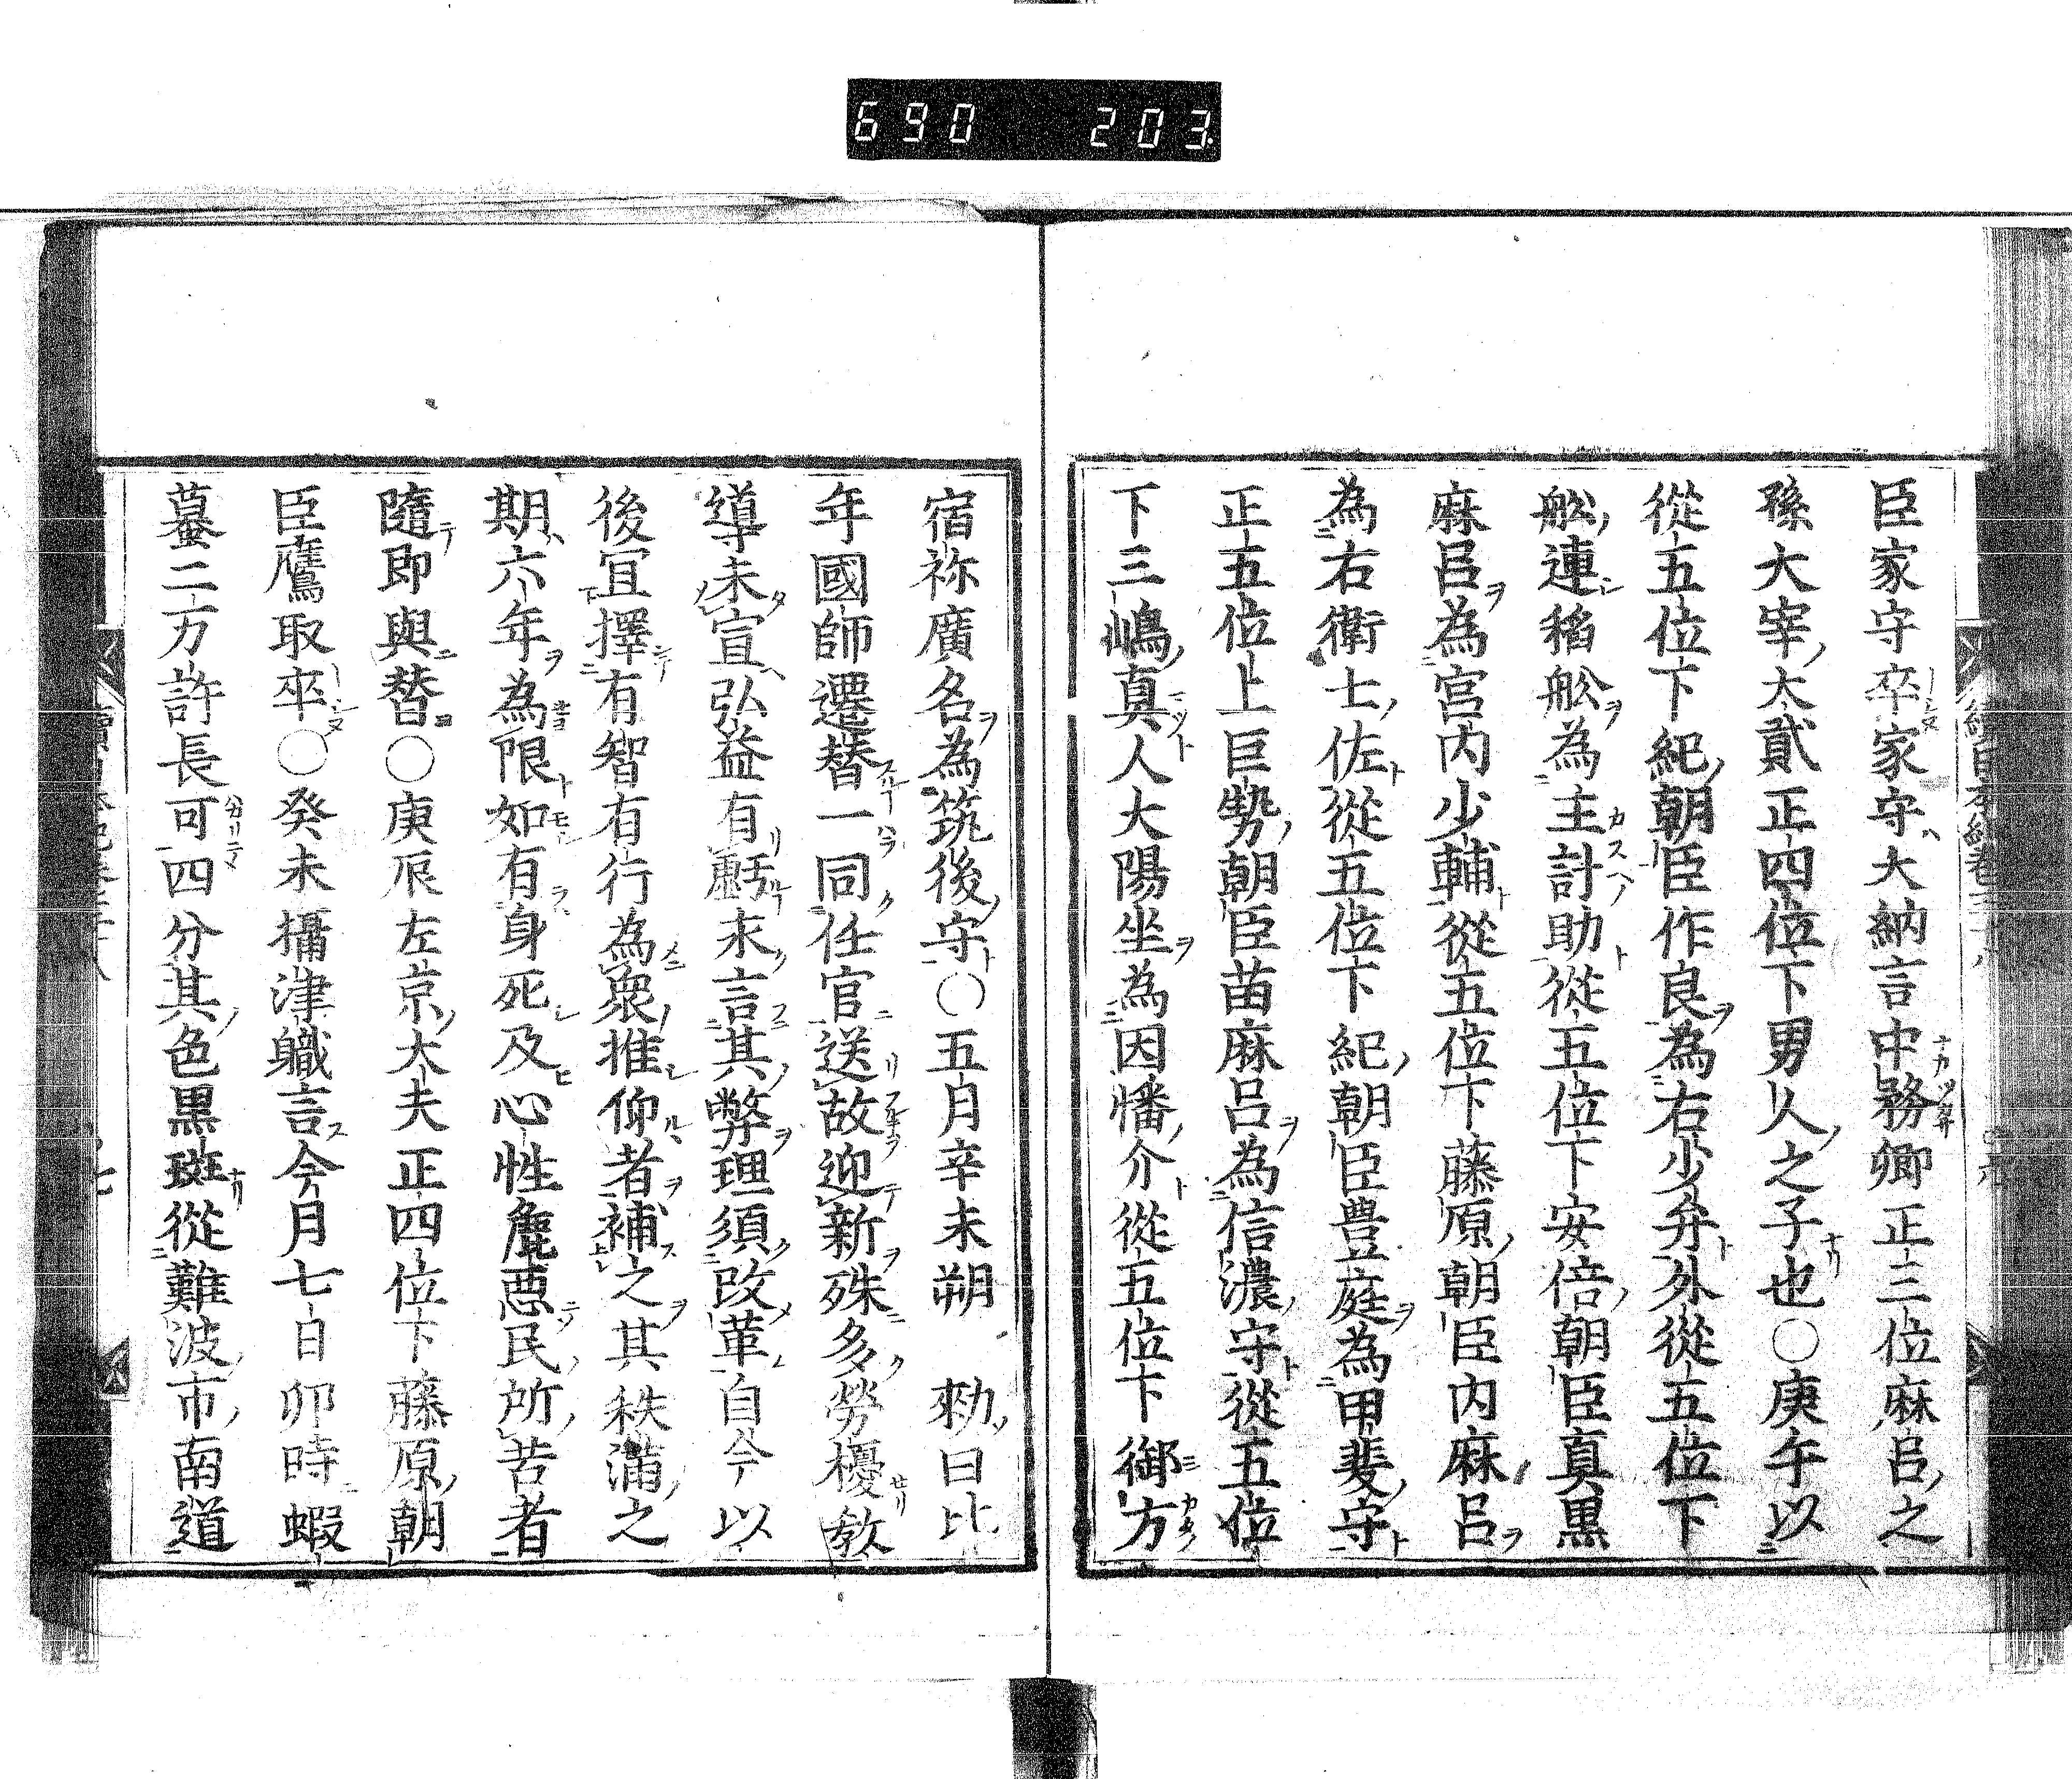 690 203
臣家守卒家守大納言中務卿正三位麻呂之
孫大宰大貳正四位下男人之子也○庚午以
從五位下紀朝臣作良為右少弁外從五位下
舩連稻舩為主計助從五位下安倍朝臣真黒
麻呂為宮内少輔從五位下藤原朝臣内麻呂
為右衛士佐從五位下紀朝臣豊庭為甲斐守
正五位上巨勢朝臣苗麻呂為信濃守從五位
下三嶋真人大陽坐為因幡介從五位下御方
宿祢廣名為筑後守○五月辛未朔 勅曰比
年國師遷替一同任官送故迎新殊多勞擾教
導未宣弘益有虧求言其弊理須改革自今以
後宜擇有智有行為衆推仰者補之其秩満之
期六年為限如有身死及心性麁悪民所苦者
隨即與替○庚辰左京大夫正四位下藤原朝
臣鷹取卒○癸未攝津職言今月七日卯時蝦
蟇二万許長可四分其色黒斑從難波市南道